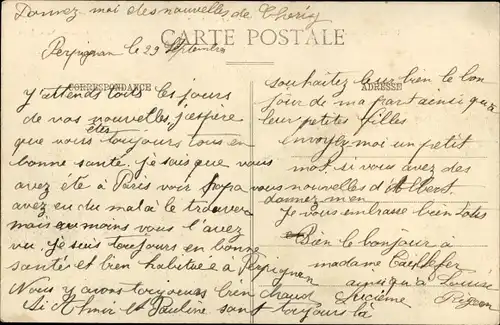 Donnez moi des nouvelles de
CARTE POSTALE
Perpignan le 29 Septembre
CORRESPONDANCE
J'attends tous les jours
de vos nouvelles j'espère
que vous êtes toujours tous en
bonne santé. je sais que vous
avez été à Paris voir papa
avez eu du mal à le trouver
mais au moins vous l'avez
vu. je suis toujours en bonne
santé et bien habituée à Perpignan
Nous y avons toujours bien chaud
Si et Pauline sont toujours là
ADRESSE
souhaitez leur bien le bon
jour de ma part ainsi qu'à
leur petites filles
Envoyez moi un petit
mot. si vous avez des
nouvelles d'Albert
donnez m'en
Je vous embrasse bien tous
Bien le bonjour à
madame
ainsi qu'à Louise
Lucienne